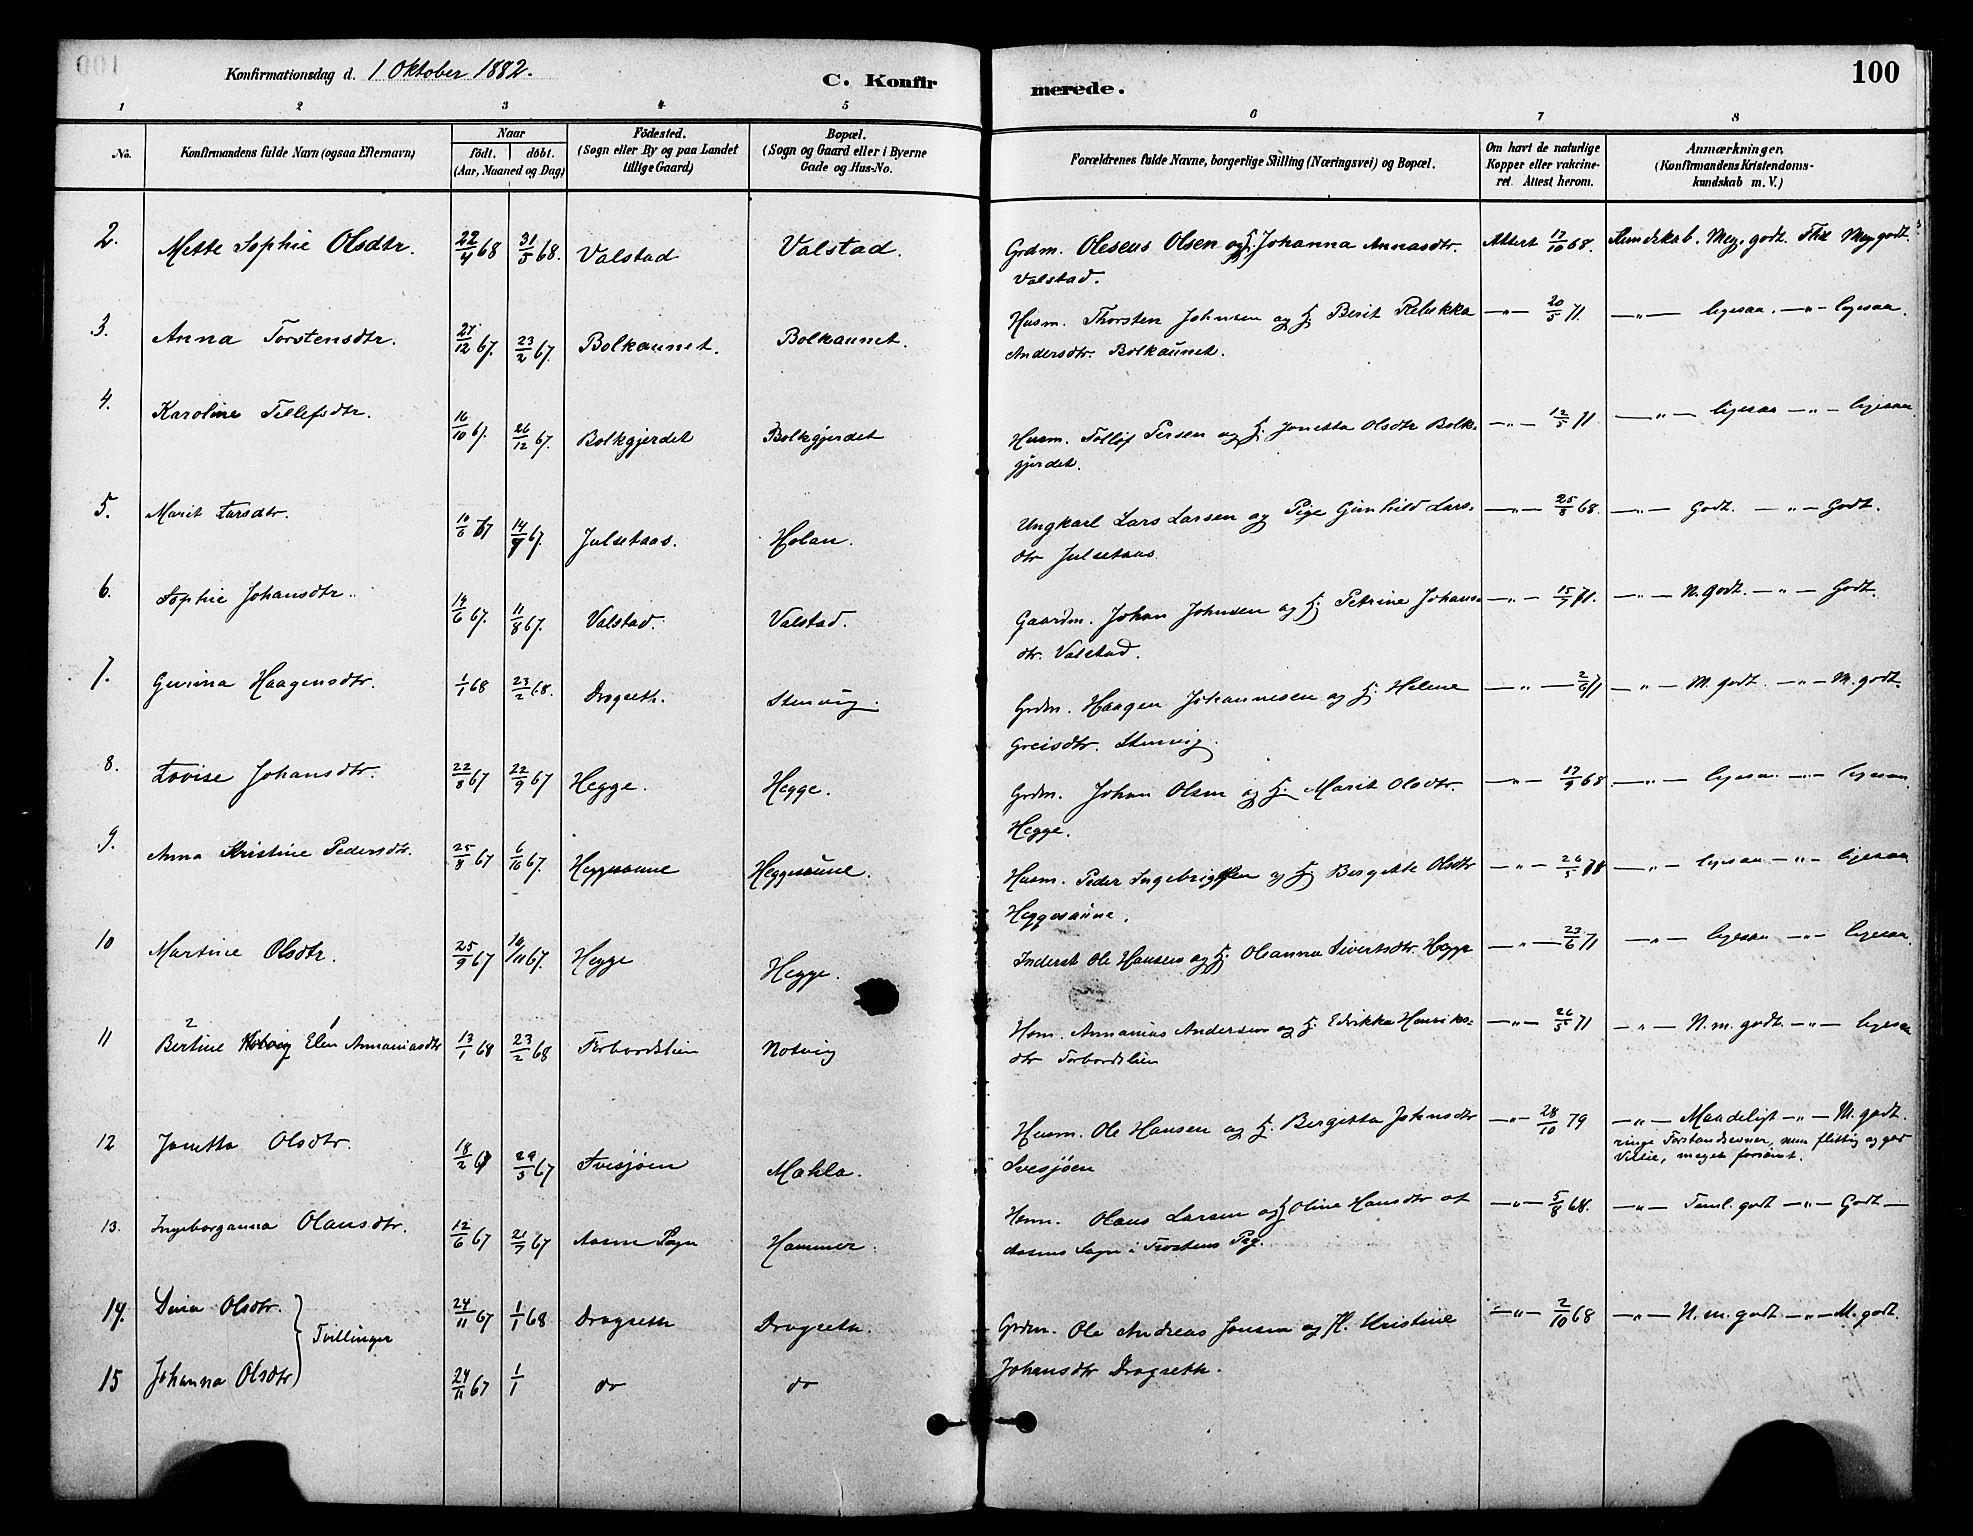 Konfirmationsdag d. 1 Oktober 1882.
C. Konfirmerede.
100
1 2 3 4 5 6 7 8
No.
Konfirmandens fulde Navn (ogsaa Efternavn)
Naar
födt. döbt.
(Aar, Maaned og Dag)
Födested.
(Sogn eller By og paa Landet
tillige Gaard)
Bopæl.
(Sogn og Gaard eller i Byerne
Gade og Hus-No.
Forældrenes fulde Navne, borgerlige Stilling (Næringsvei) og Bopæl.
Om havt de naturlige
Kopper eller vakcine-
ret. Attest herom.
Anmærkninger.
(Konfirmandens Kristendoms-
kundskab m. V.)
2. Mette Sophie Olsdtr. 22/4 68 31/5 68. Valstad Valstad. Grdm. Oleseus Olsen og H. Johanna Annasdtr. Attest 17/10 68. Kundskab. Meg. godt. Flid Meg godt.
Valstad.
3. Anna Torstensdtr. 27/12 67. 23/2 67. Bolkaunet. Bolkaunet. Husm. Thorsten Johnsen og H. Berit Rebekka —"— 20/5 71. —"— ligesaa. —"— ligesaa.
Andersdtr. Bolkaunet.
4. Karoline Tellefsdtr. 16/10 67. 26/12 67. Bolkgjerdet Bolkgjerdet Husm. Tollöf Persen og H. Jonetta Olsdtr Bolk- —"— 12/5 71 —"— ligesaa —"— ligesaa
gjerdet.
5. Marit Larsdtr. 10/6 67 14/9 67. Julsetaas. Holan. Ungkarl Lars Larsen og Pige Gunhild Lars- —"— 25/8 68. —"— Godt. —"— Godt.
dtr Julsetaas.
6. Sophie Johansdtr. 14/6 67. 11/8 67. Valstad. Valstad. Gaardm. Johan Johnsen og H. Petrine Johans- —"— 15/7 71. —"— N. godt. —"— Godt.
dtr. Valstad.
7. Gurina Haagensdtr. 1/1 68 23/2 68. Dragseth. Stenvig. Grdm. Haagen Johannesen og H. Helene —"— 2/6 71 —"— M. godt. —"— M. godt.
Greisdtr. Stenvig.
8. Lovise Johansdtr. 22/8 67 22/9 67 Hegge. Hegge. Grdm. Johan Olsen og H. Marit Olsdtr. —"— 17/9 68 —"— ligesaa —"— ligesaa
Hegge.
9. Anna Kristine Pedersdtr. 25/8 67 6/10 67. Heggesaune Heggesaune. Husm. Peder Ingebrigtsen og H. Bergitte Olsdtr —"— 26/5 78 —"— ligesaa —"— ligesaa
Heggesaune.
10 Martine Olsdtr. 25/9 67 10/11 67. Hegge Hegge. Inderst Ole Hansen og H. Olsanna Sivertsdtr. Hegge —"— 23/6 71 —"— ligesaa —"— ligesaa.
2 1
11 Bertine Elen Annaniasdtr 13/1 68 23/2 68 Forbordslien Notvig Hsm. Annanias Andersen og H. Edvikka Henriks- —"— 26/5 71 —"— N. m. godt. —"— ligesaa
dtr Forbordslien
12 Jonetta Olsdtr. 18/2 67 29/5 67 Svesjøen Mahla. Husm. Ole Hansen og H. Bergitta Johnsdtr —"— 28/10 79 —"— Maadeligt —"— M. godt.
Svesjøen ringe Forstandsevner, men flittig og god
Villie, meget forsømt.
13. Ingeborganna Olausdtr. 12/6 67 21/7 67 Aasens Sogn Hammer. Hsm. Olaus Larsen og H Oline Hansdtr af —"— 5/8 68. —"— Teml. godt —"— Godt —
Aasens Sogn i Frostens Pg.
14. Dina Olsdtr. 24/11 67 1/1 68 Dragseth Dragseth. Grdm. Ole Andreas Jonsen og H. Kristine —"— 2/10 68 —"— N. m. godt. —"— M. godt.
Tvillinger
15 Johanna Olsdtr 24/11 67 1/1 do do Johansdtr Dragseth.